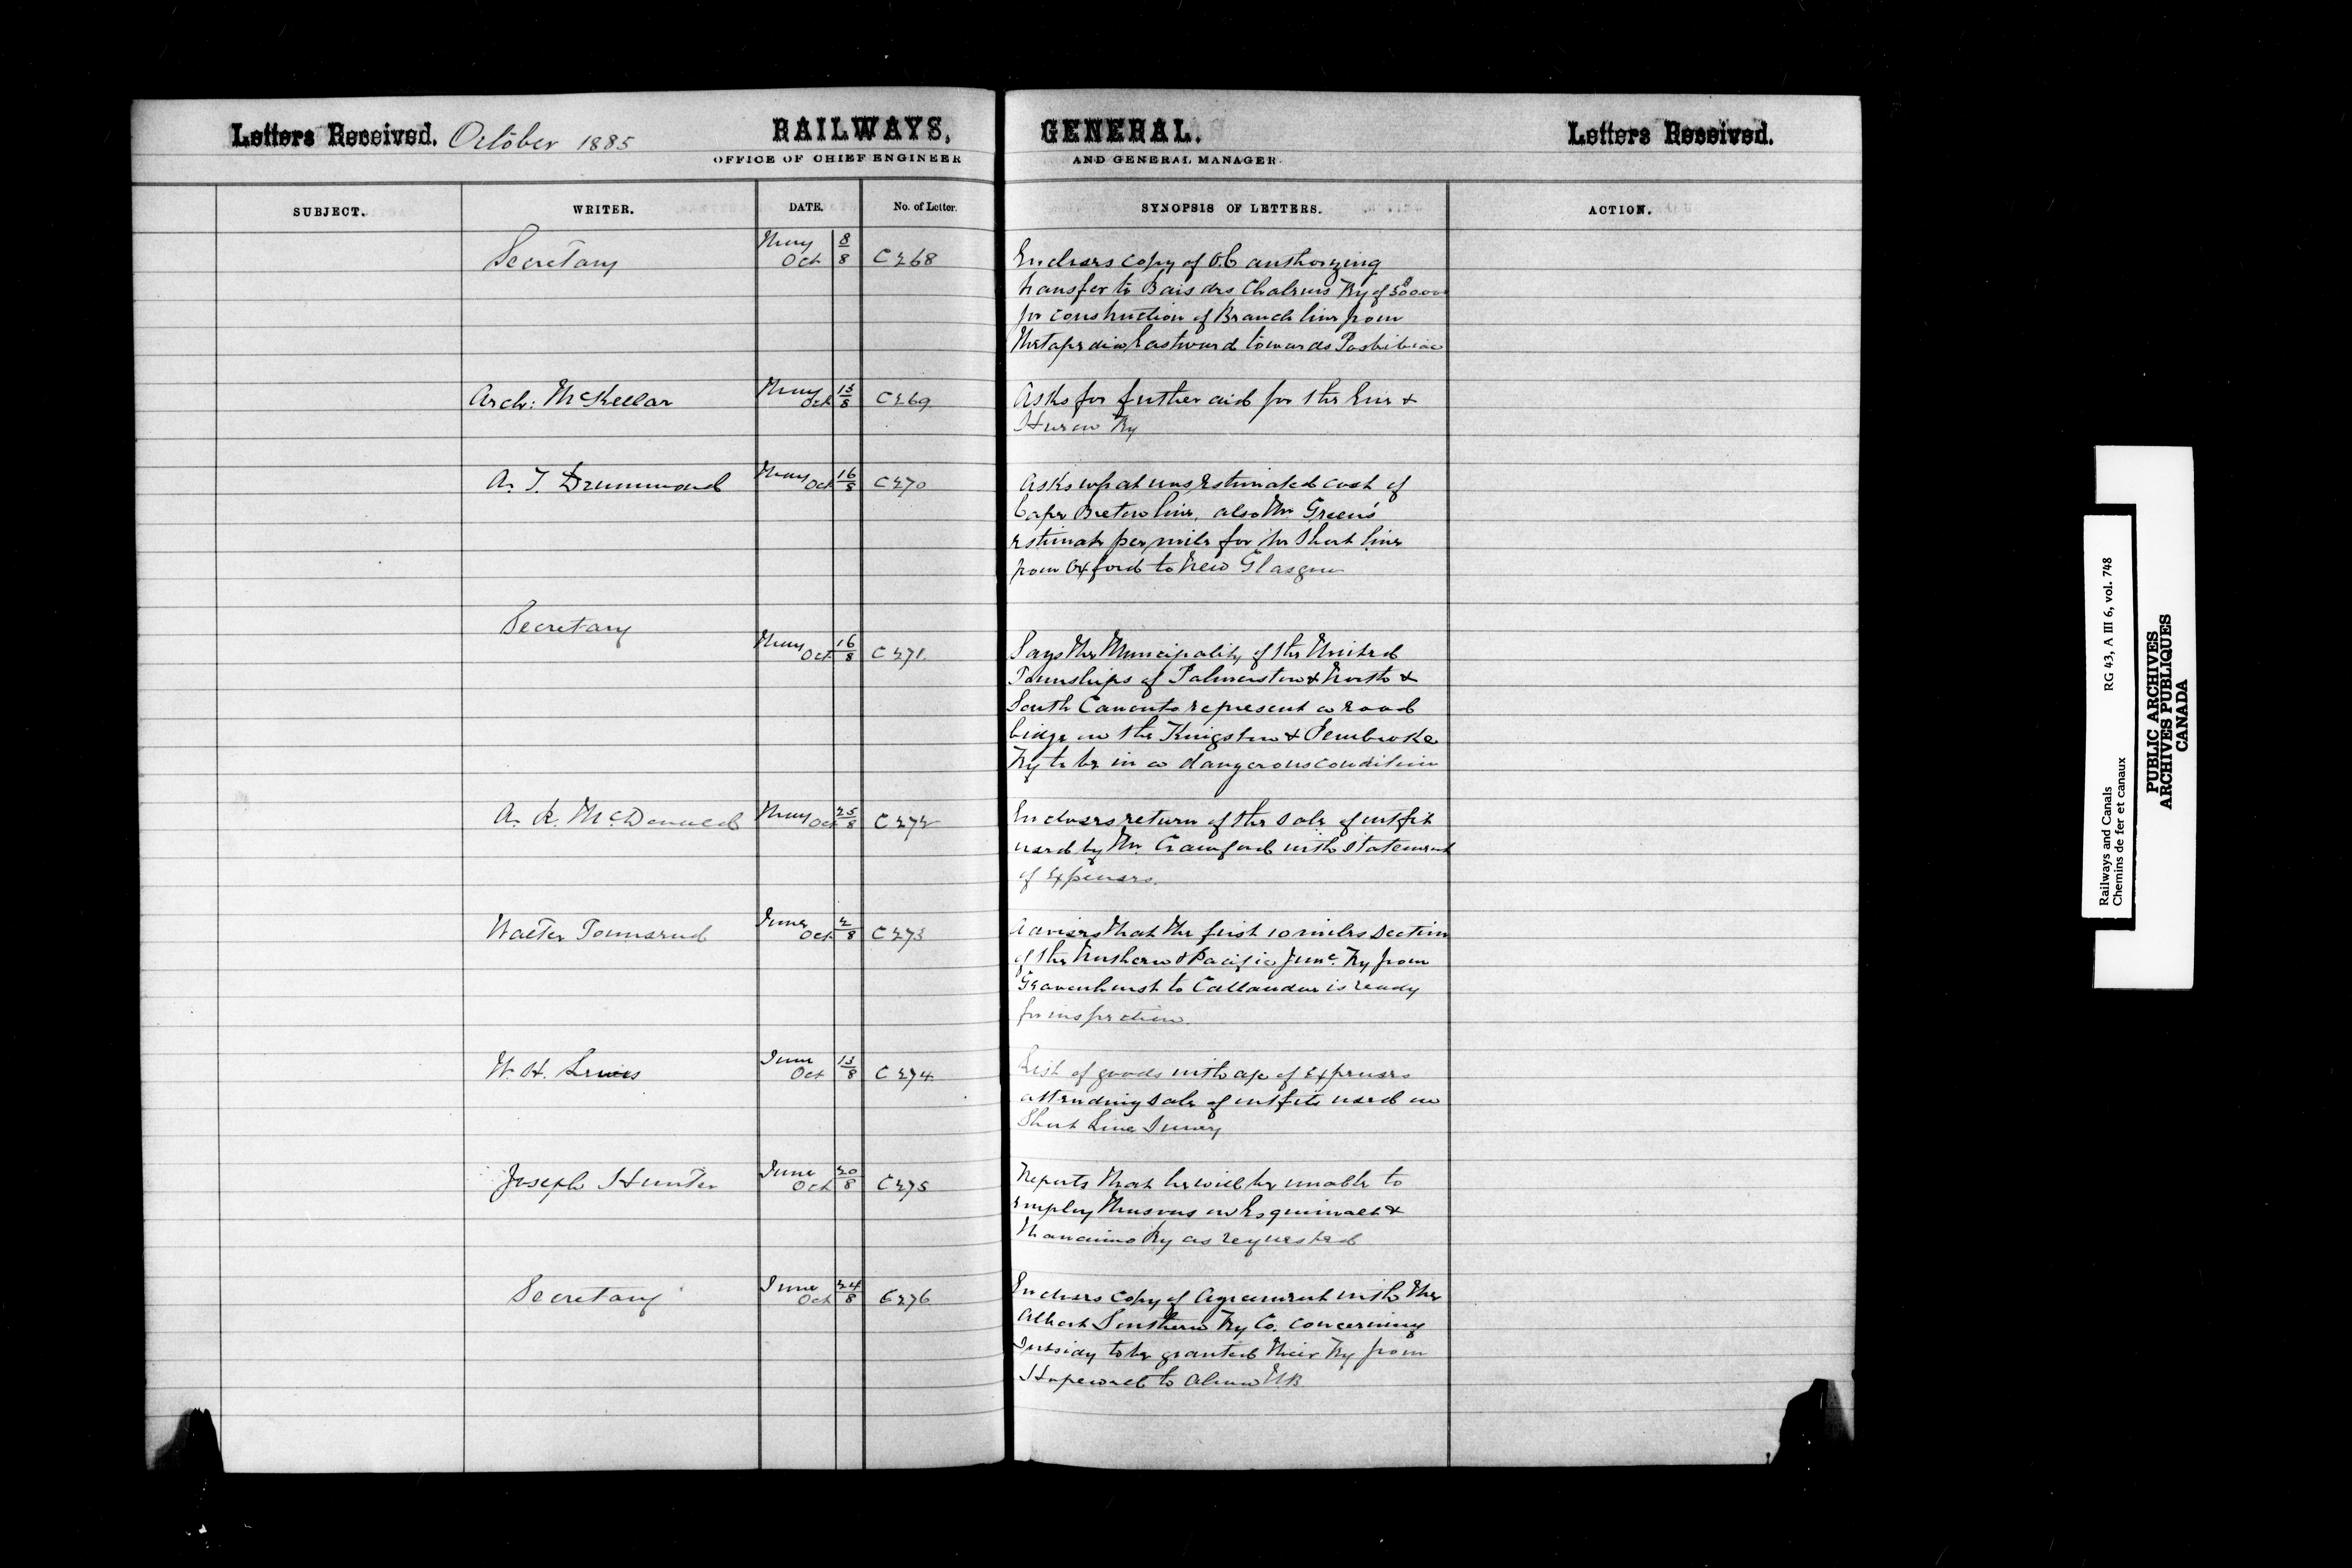 Letters Received. October 1885 RAILWAYS, GENERAL. Letters Received.
OFFICE OF CHIEF ENGINEER AND GENERAL MANAGER.
SUBJECT. WRITER. DATE. No. of Letter. SYNOPSIS OF LETTERS. ACTION.
Secretary May 8 Oct 8 C268
Encloses copy of O.C authorizing
transfer to Baie des Chaleurs Ry of
for construction of Branch line from
Metapedia Eastward towards Paspebiac
Arch: McKellar May 13 Oct 8 C269
Asks for further aid for the Erie &
Huron Ry
A. T. Drummond May 16 Oct 8 C270
Asks what was estimated cost of
Cape Breton line, also Mr Green's
estimate per mile for the Short line
from Oxford to New Glasgow
Secretary
May 16 Oct 8 C271.
Says the Municipality of the United
Townships of Palmerston & North &
South Canonto represent a road
bidge on the Kingston & Pembroke
Ry to be in a dangerous condition
A. R. McDonald May 25 Oct 8 C272
Encloses return of the sale of outfit
used by Mr. Crawford with statement
of Expenses.
Walter Townsend June 2 Oct 8 C273
Advises that the first 10 miles section
of the Northern & Pacific Junc. Ry from
Gravenhurst to Callander is ready
for inspection.
W. H. Lewis June 13 Oct 8 C274
List of goods with a/c of Expenses
attending sale of outfits used on
Short Line Survey
Joseph Hunter June 20 Oct 8 C275
Reports that he will be unable to
employ on Esquimalt &
Nanaimo Ry as requested
Secretary June 24 Oct 8 C276
Encloses copy of Agreement with the
Albert Southern Ry Co. concerning
Subsidy to be granted their Ry from
Hopewell to Alma NB.
Railways and Canals RG 43, A III 6, vol. 748
Chemins de fer et canaux
PUBLIC ARCHIVES
ARCHIVES PUBLIQUES
CANADA